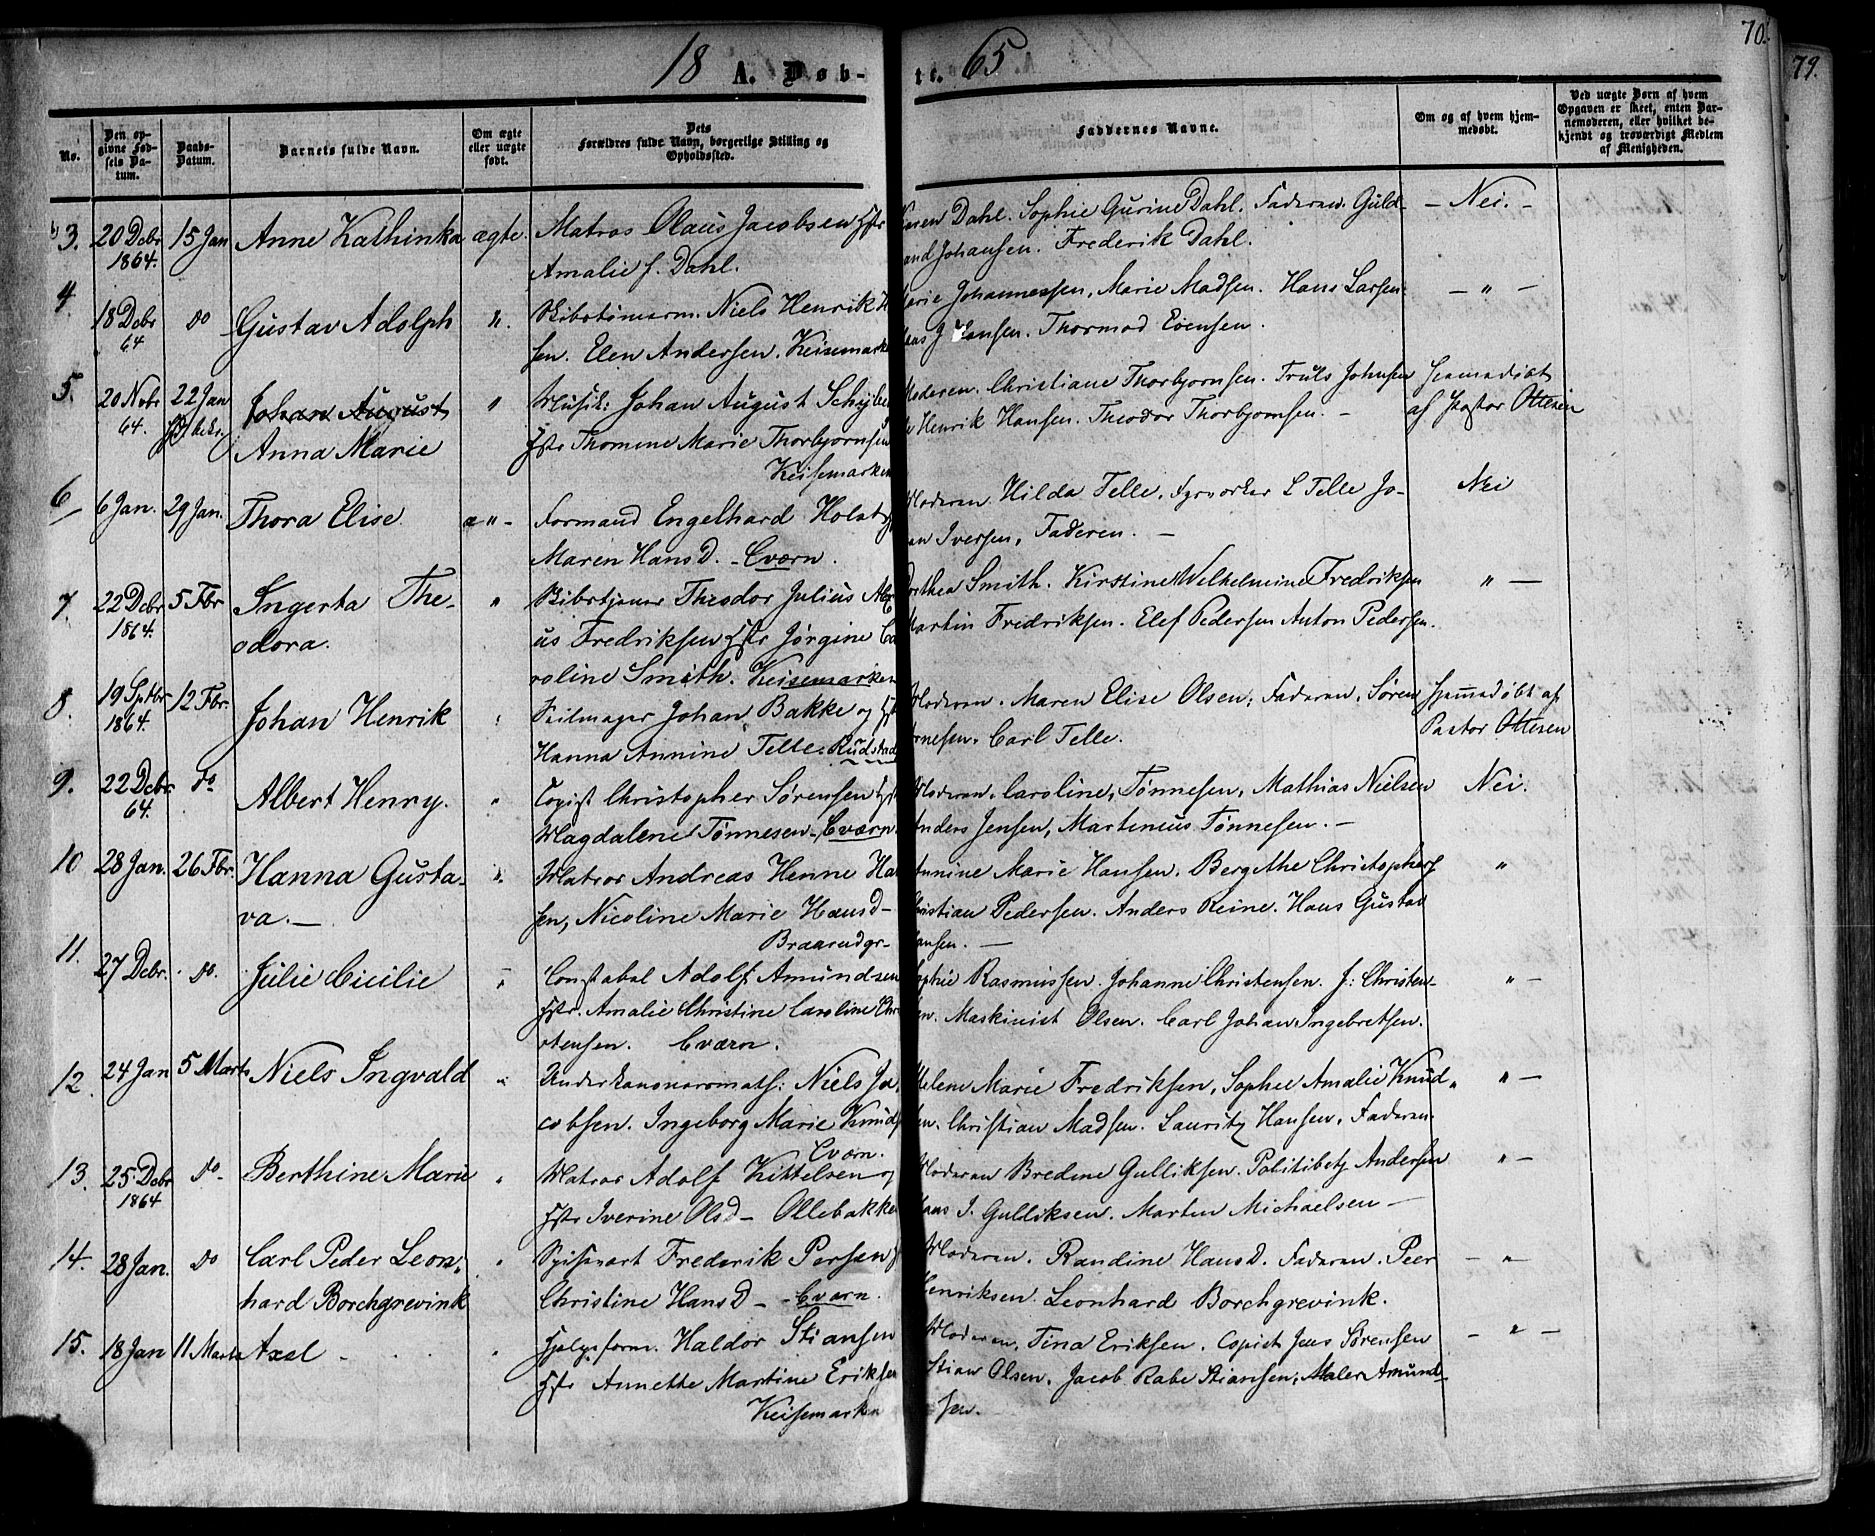 18 A. Døb-te. 65
70.
79.
No.
Den opgivne Fødsels Datum.
Daabs-Datum.
Barnets fulde Navn.
Om ægte eller uægte født.
Dets Forældres fulde Navn, borgerlige Stilling og Opholdssted.
Faddernes Navne.
Om og af hvem hjemmedøbt.
Ved uægte Børn af hvem Opgaven er skeet, enten Barnemoderen, eller hvilket bekjendt og troværdigt Medlem af Menigheden.
3. 20 Debr 15 Jan Anne Kathinka ægte. Matros Olaus Jacobsen Hst Karen Dahl. Sophie Gurine Dahl. Faderen. Guld- — Nei. —
1864. Amalie f. Dahl. and Johansen. Frederik Dahl.
4. 18 Debr do Gustav Adolph " Skibstømerm. Niels Henrik Marie Johannessen, Marie Madsen. Hans Larsen — " —
64 sen. Elen Andersen. Keisemarken Hansen. Thormod Evensen.
5. 20 Nobr 22 Jan Johan August " Musik: Johan August Moderen. Christiane Thorbjørnsen. Truls Johnsen Hjemmedøbt
64. Anna Marie Hst Thomine Marie Thorbjørnsen Henrik Hansen. Theodor Thorbjørnsen. — af Pastor Ottesen
Keisemarken
6 6 Jan. 29 Jan. Thora Elise " Formand Engelhard Holst Moderen. Hilda Telle, Fyrvorker L Telle Jo- Nei
Maren HansD. - Cværn. an Iversen, Faderen. —
7. 22 Debr 5 Fbr Ingerta The- " Skibstjener Theodor Julius Dorthea Smith. Kirstine Wilhelmine Fredriksen " —
1864. odora. us Fredriksen Hst Jørgine Ca Martin Fredriksen. Elef Pedersen Anton Pedersen.
roline Smith. Keisemarken
8. 19 Sptbr 12 Fbr. Johan Henrik " Seilmager Johan Bakke og Hst Moderen. Maren Elise Olsen, Faderen, Søren Hjemmedøbt af
1864. Hanna Annine Telle. Rudstad Carl Telle. Pastor Ottesen
9. 22 Debr do Albert Henry. " Copist Christopher Sørensen Hst Moderen. Caroline Tønnesen, Mathias Nielsen Nei.
64. Magdalene Tønnesen - Cværn. Anders Jensen, Martinius Tønnesen. —
10 28 Jan. 26 Fbr. Hanna Gusta- " Matros Andreas Henne Han Annine Marie Hansen. Bergithe Christophers "
va. — sen, Nicoline Marie HansD — Christian Pedersen. Anders Reine. Hans Gustav
Braarudgr- Hansen. —
11. 27 Debr. do. Julie Cicilie " Constabel Adolf Amundsen Sophie Rasmussen. Johanne Christensen. J: Christen- " —
Hst. Amalie Christine Caroline Chri sen. Maskinist Olsen. Carl Johan Ingebretsen.
stensen. Cværn.
12. 24 Jan 5 Marts Niels Ingvald " Underkanoneermats: Niels Ja Helene Marie Fredriksen, Sophie Amalie Knud " —
cobsen. Ingeborg Marie Knuds sen. Christian Madsen. Lauritz Hansen, Faderen.
Cværn.
13. 25 Debr do. Berthine Marie " Matros Adolf Kittelsen og Moderen Bredine Gulliksen. Politibetj Andersen " —
1864 Hst Iverine OlsD — Ollebakken Hans J. Gulliksen. Marten Michaelsen —
14. 28 Jan. do Carl Peder Leon- " Spisevært Frederik Persen Moderen. Randine HansD. Faderen. Peer — "
hard Borchgrevink Christine HansD — Cværn. Henriksen. Leonhard Borchgrevink.
15. 18 Jan 11 Marts Axel " Hjelpeform. Haldor Stiansen Moderen, Tina Eriksen. Copist Jens Sørensen — " —
Hst Annette Martine Eriksen Stian Olsen, Jacob Rabe Stiansen, Maler Amund-
Keisemarken sen.